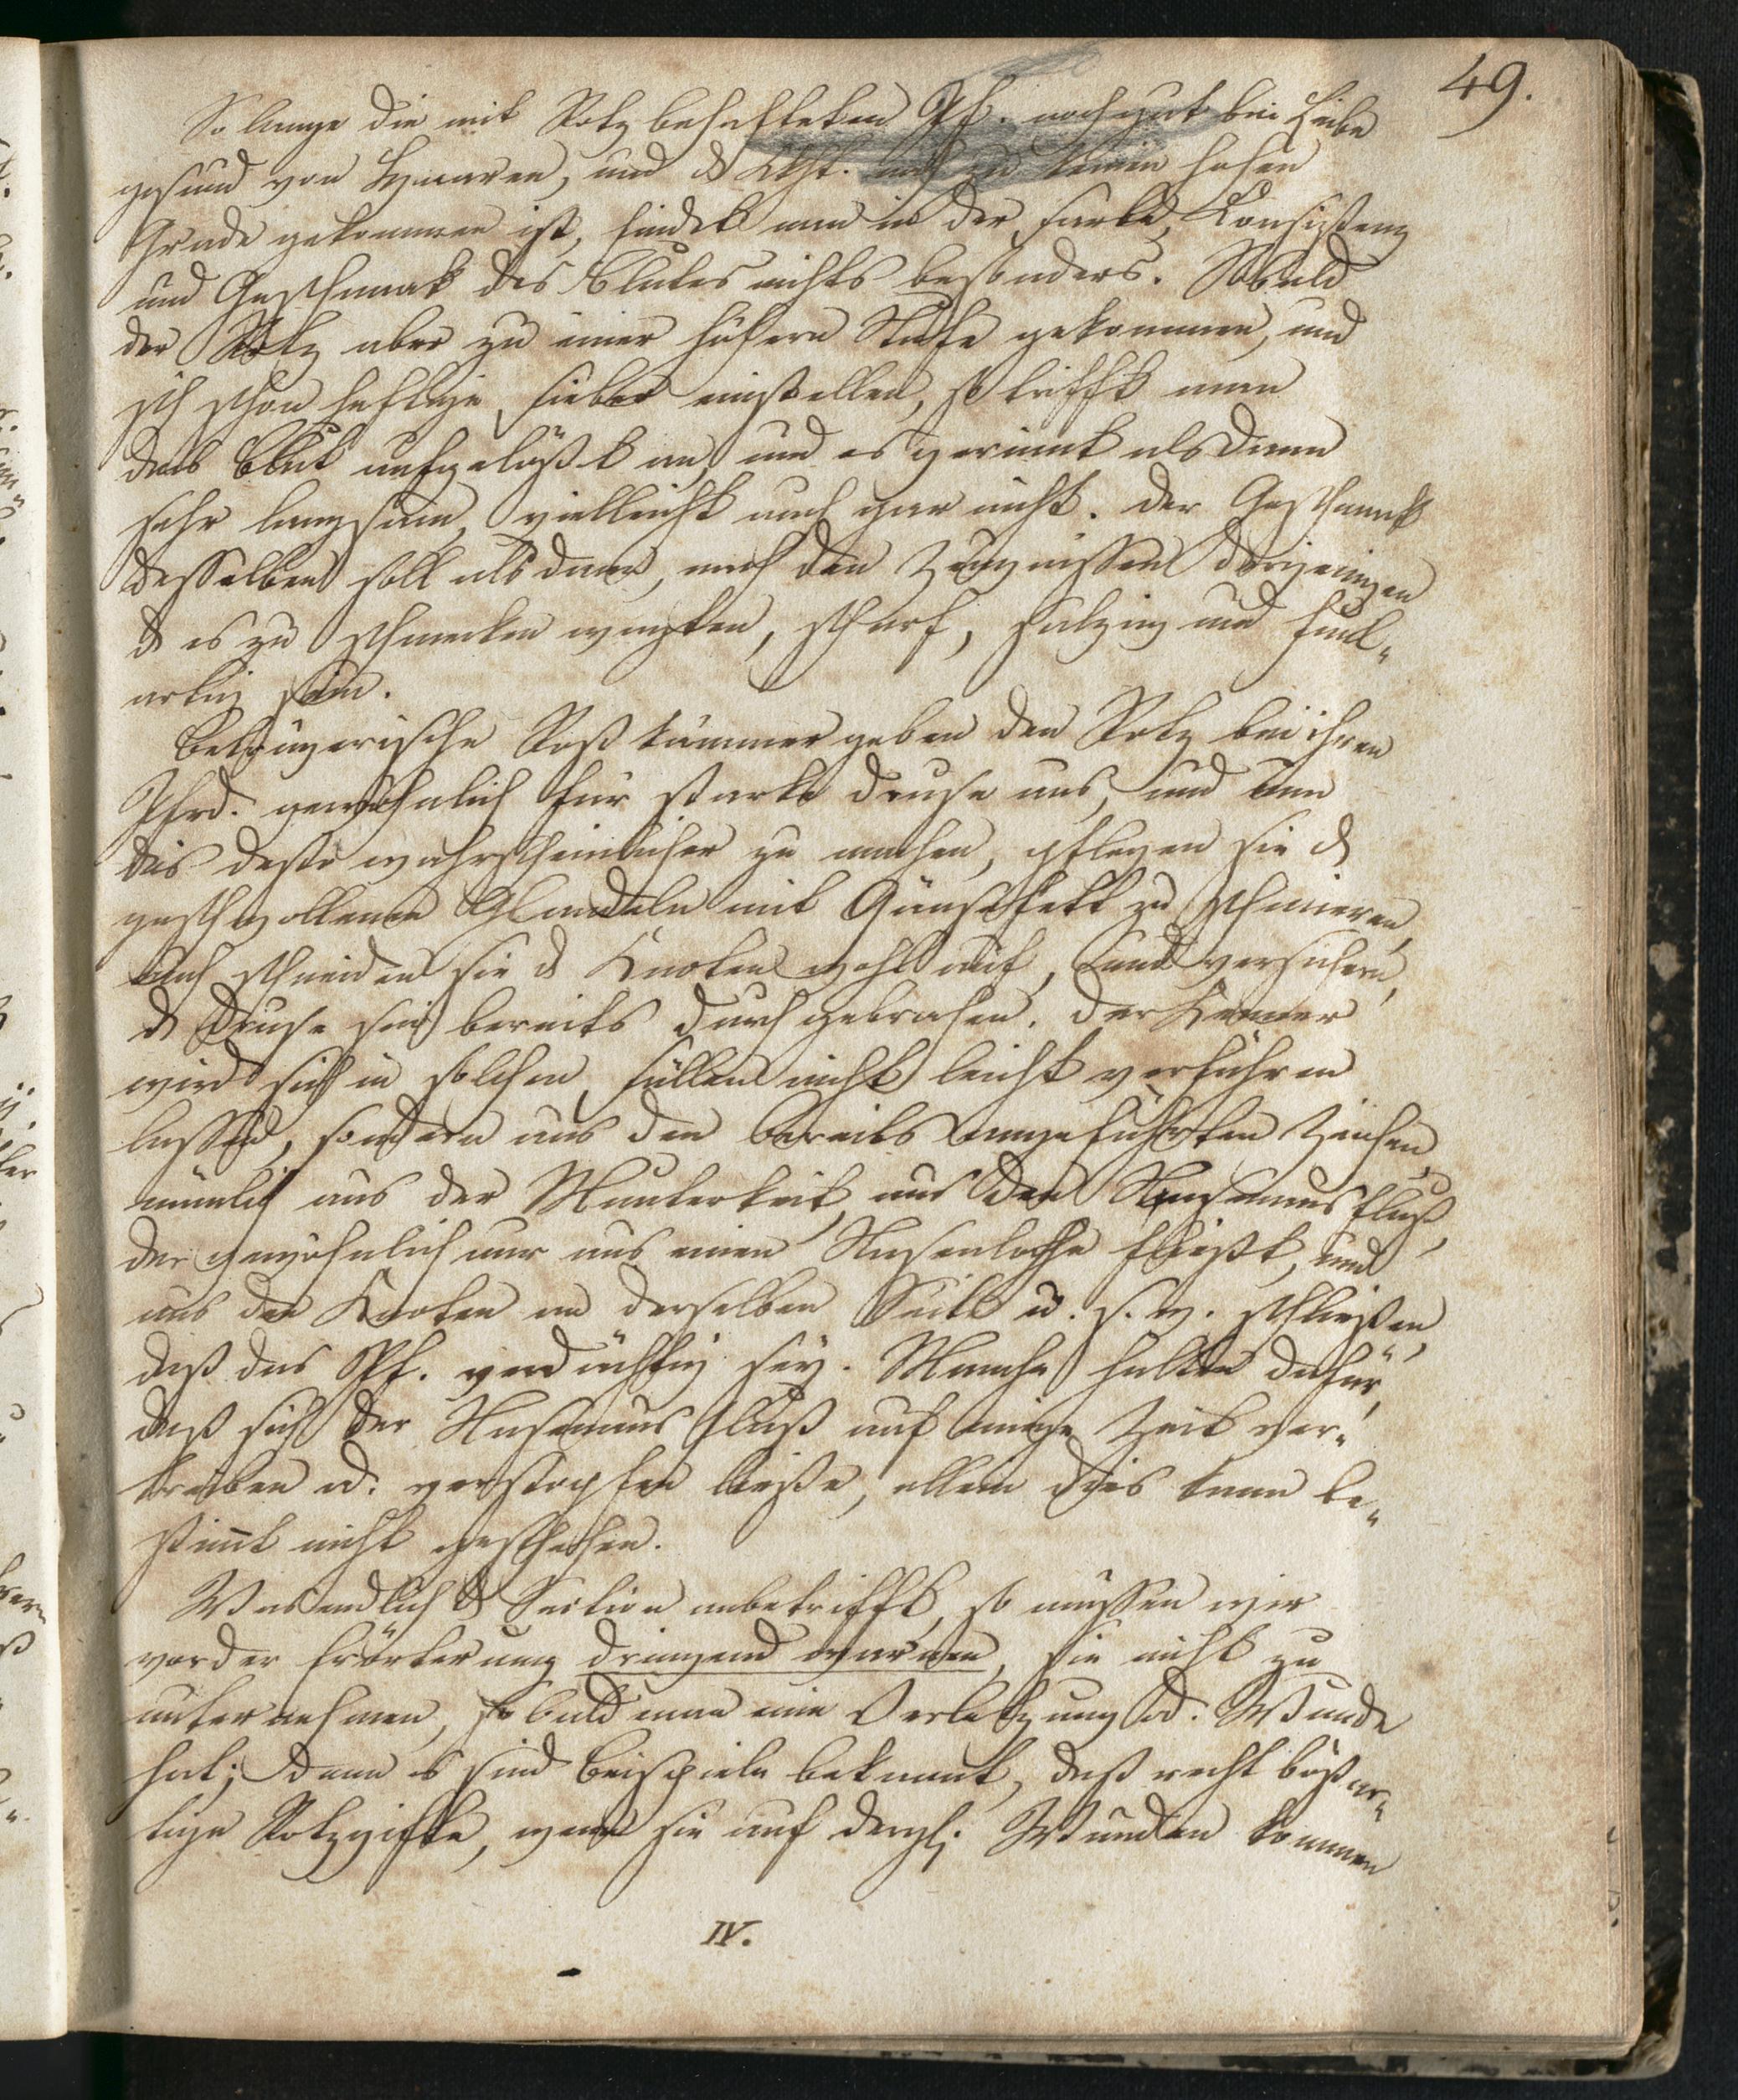 49.
So lange die mit Rotz behafteten Pf. noch gut bei Leibe
gesund von Haaren, und d Kkht. noch zu keinen hohen
Grade gekommen ist, findet man in der Farbe, Konsistenz
und Geschmak des Blutes nichts besonders. Sobald
der Rotz aber zu einer höhern Stufe gekommen, und
sich schon heftige Fieber einstellen, so trifft man
das Blut aufgelößt an, und es gerinnt alsdann
sehr langsam, vielleicht auch gar nicht. Der Geschmack
desselben soll alsdann, nach den Zeugnissen derjenigen
d es zu schmecken wagten, scharf, salzig und faul-
artig sein.
Betrügerische Roßkämmer geben den Rotz bei ihren
Pfrd. gewöhnlich für starke Druse aus, und um
dies desto wahrscheinlicher zu machen, pflegen sie d
geschwollenen Glandeln mit Gänsefett zu schmieren,
auch schneiden sie d Knoten wohl auf, und versichern,
d Druse sei bereits durchgebrochen. Der Kenner
wird sich in solchen Fällen nicht leicht verführen
lassen, sondern aus den bereits angeführten Zeichen,
nämlich aus der Munterkeit, aus den Nasenausfluß,
der gewöhnlich nur aus einen Nasenloche fließt, und
aus den Knoten an derselben Seite u. s. w. schließen,
daß das Pf. verdächtig sey. Manche halten dafür,
daß sich der Nasenausfluß auf einige Zeit ver-
treiben od. verstopfen ließe, allein dies kann be-
stim̄t nicht geschehen.
Was endlich d Section anbetrifft, so müssen wir
vor der Erörterung dringend warnen, sie nicht zu
unternehmen, sobald man eine Verletzung od. Wunde
hat; denn es sind Beispiele bekannt, daß recht bösar-
tige Rotzgifte, wenn sie auf dergl. Wunden kommen
IV.